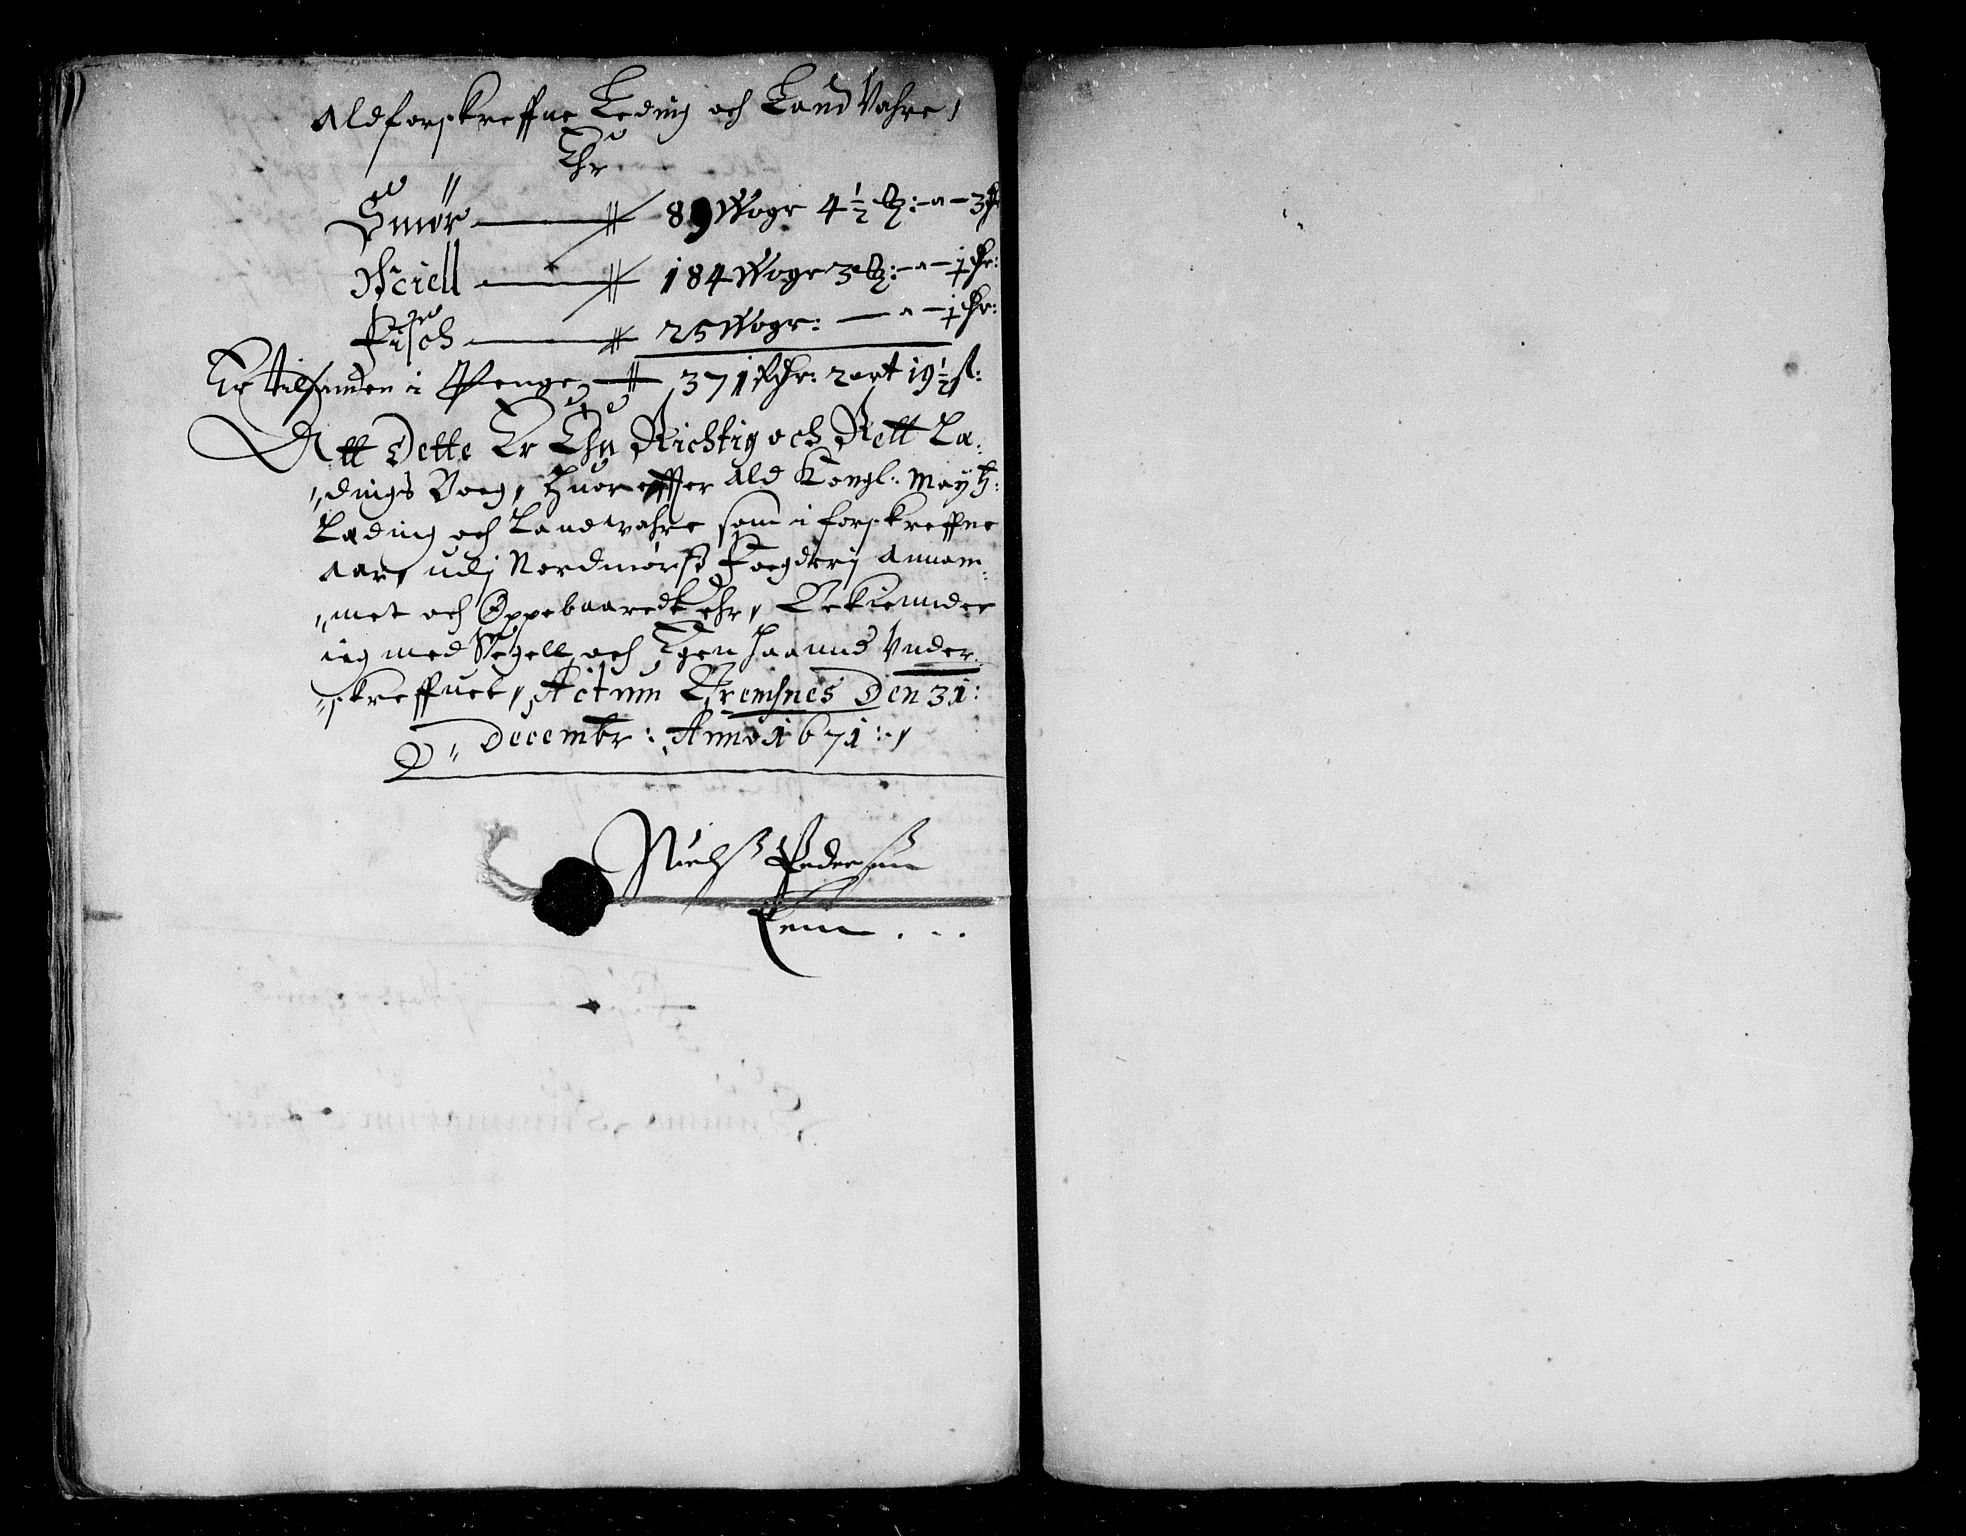 Aldforskreffne Leding och Land Vahre,
Ehr
Smør — 89 Wogr 4½ — a — 3
Meell — 184 Wogr 3 — a — j
Fisch — 25 Wogr: — a — j
Er tilsamben i Penge — 371 2 ort 19½ s:
Att Dette Er Ehn Richtig och Rett Læ,
dings Boeg, Huor effter Ald Kongl: May tz:
Læding och Landvahre som i forskreffne
Aar, udj Nordmørss Foegderj Annam:
met och Oppebaaredt Ehr, Bekiender
ieg med Segell och Egen Haannd Vnder
skreffuet, Actum Bremsnes Den 31:
D: Decembr: Anno 1671:,
Nielss Pedersøn